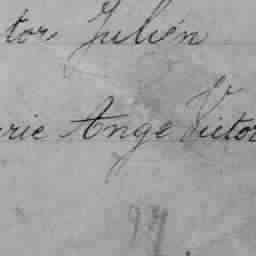 tor Julien
rie Ange Victor